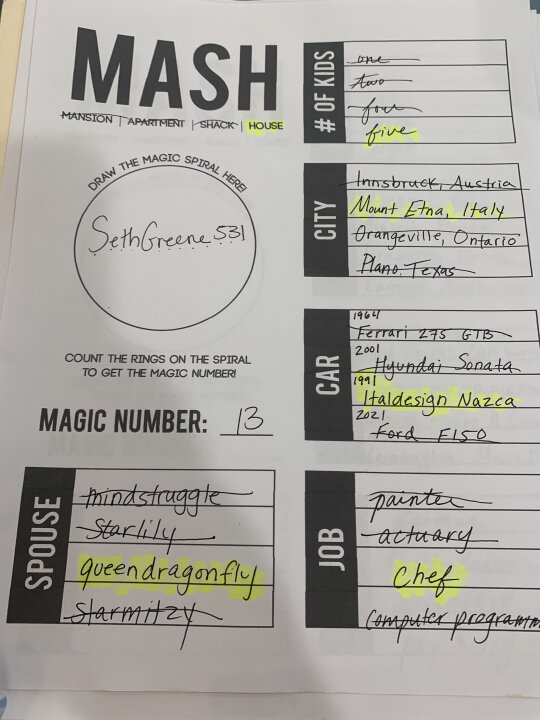 MASH
MANSION | APARTMENT | SHACK | HOUSE
DRAW THE MAGIC SPIRAL HERE!
SethGreene531
COUNT THE RINGS ON THE SPIRAL
TO GET THE MAGIC NUMBER!
MAGIC NUMBER: 13
# OF KIDS
one
two
four
five
CITY
Innsbruck, Austria
Mount Etna, Italy
Orangeville, Ontario
Plano, Texas
CAR
1964
Ferrari 275 GTB
2001
Hyundai Sonata
1991
Italdesign Nazca
2021
Ford F150
SPOUSE
mindstruggle
Starlily
queendragonfly
starmitzy
JOB
painter
actuary
Chef
computer programm